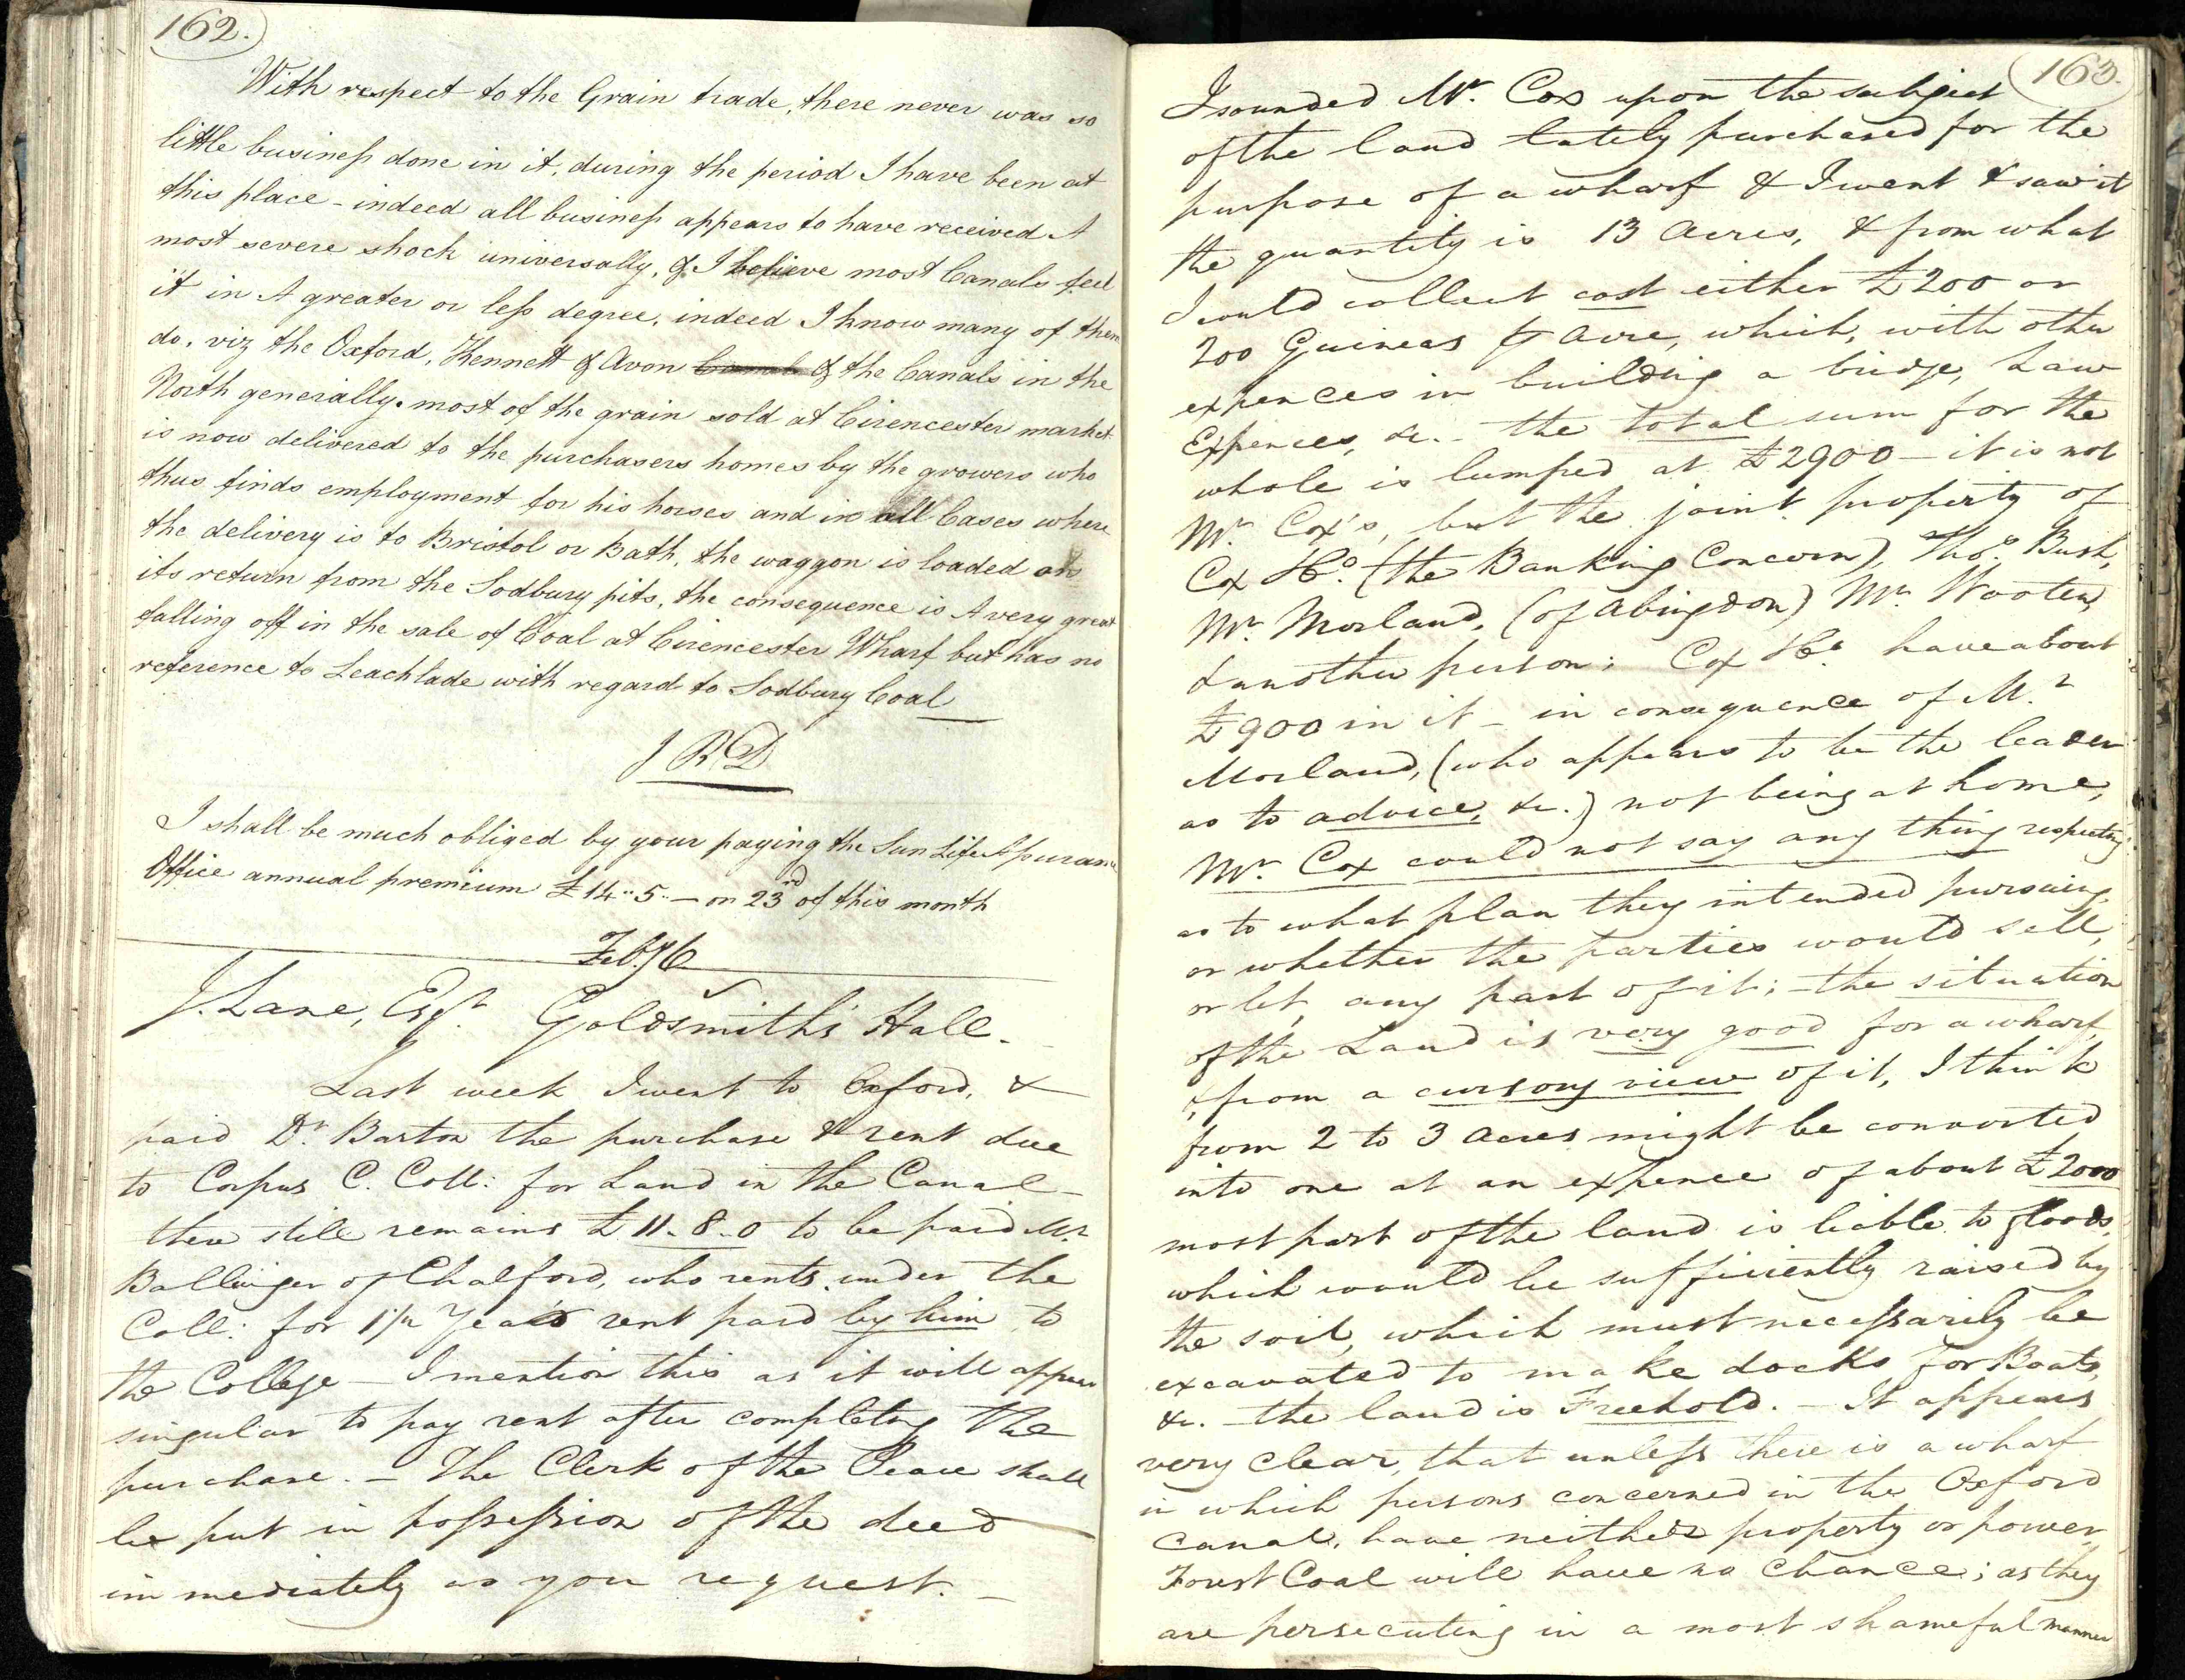 162.
With respect to the Grain trade, there never was so
little business done in it, during the period I have been at
this place - indeed all business appears to have received A
most severe shock universally, & I believe most Canals feel
it in A greater or less degree, indeed I know many of them
do, viz the Oxford, Kennett & Avon & the Canals in the
North generally. most of the grain sold at Cirencester market
is now delivered to the purchasers homes by the growers who
thus finds employment for his horses and in all Cases where
the delivery is to Bristol or Bath, the waggon is loaded on
its return from the Sodbury pits, the consequence is A very great
falling off in the sale of Coal at Cirencester Wharf but has no
reference to Leachlade with regard to Sodbury Coal
J R D
I shall be much obliged by your paying the Sun Life Assurance
Office annual premium £14..5..— on 23rd of this month
Feby 6
J. Lane, Esqr. Goldsmith's Hall.
Last week I went to Oxford, &
paid Dr. Barton the purchase & rent due
to Corpus C. Coll: for Land in the Canal -
there still remains £11.8.0 to be paid Mr.
Ballinger of Chalford, who rents under the
Coll: for 1½ Years rent paid by him to
the College — I mention this as it will appear
singular to pay rent after completing the
purchase. — The Clerk of the Peace shall
be put in possession of the deed
immediately as you request. —
163.
I sounded Mr. Cox upon the subject
of the land lately purchased for the
purpose of a wharf & I went & saw it
the quantity is 13 Acres, & from what
I could collect cost either £200 or
200 Guineas ⅌ Acre, which, with other
expences in building a bridge, Law
Expences, &c. - the total sum for the
whole is lumped at £2900 — it is not
Mr. Cox's, but the joint property of
Cox & Co. (the Banking Concern), Thos. Bush,
Mr. Morland, (of Abingdon) Mr. Wooten,
& another person; Cox & Co. have about
£900 in it - in consequence of Mr.
Morland, (who appears to be the leader
as to advice, &c.) not being at home,
Mr. Cox could not say any thing respecting
as to what plan they intended pursuing,
or whether the parties would sell,
or let, any part of it; - the situation
of the Land is very good for a wharf,
& from a cursory view of it, I think
from 2 to 3 Acres might be converted
into one at an expence of about £2000
most part of the land is liable to floods,
which would be sufficiently raised by
the soil, which must necessarily be
excavated to make docks for Boats,
&c. - the land is Freehold. - It appears
very clear, that unless there is a wharf
in which persons concerned in the Oxford
Canal, have neither property or power,
Forest Coal will have no Chance; as they
are persecuting in a most shameful manner